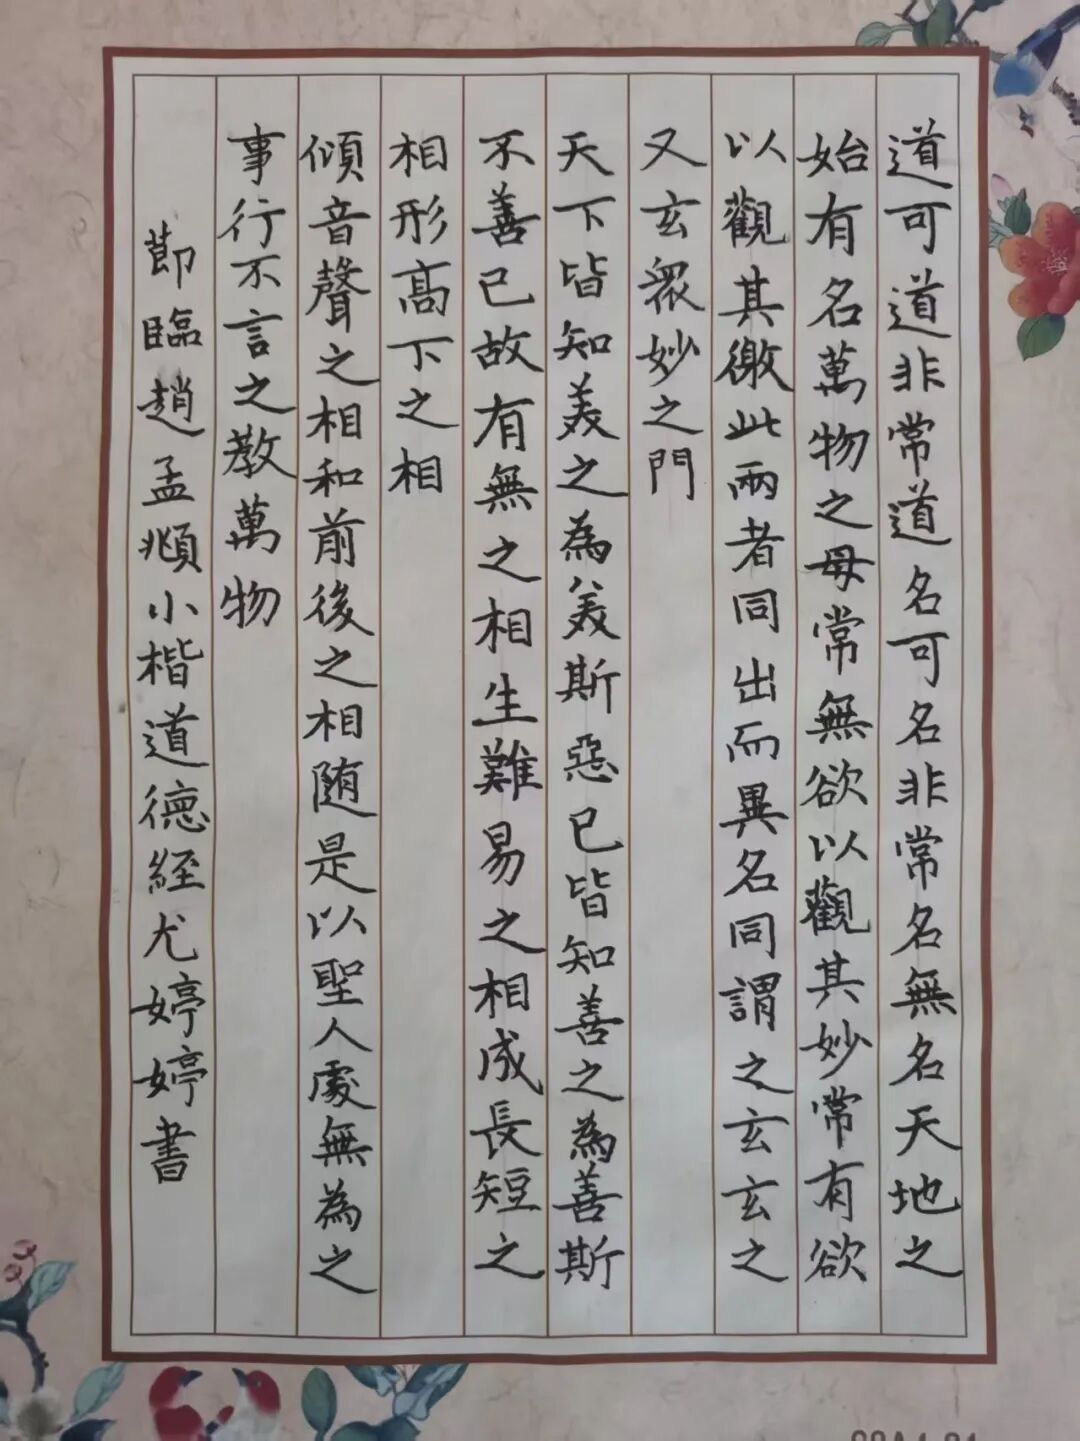 道可道非常道名可名非常名無名天地之
始有名萬物之母常無欲以觀其妙常有欲
以觀其徼此兩者同出而異名同謂之玄玄之
又玄衆妙之門
天下皆知美之為美斯惡已皆知善之為善斯
不善已故有無之相生難易之相成長短之
相形高下之相
傾音聲之相和前後之相随是以聖人處無為之
事行不言之教萬物
節臨趙孟頫小楷道德經尤婷婷書